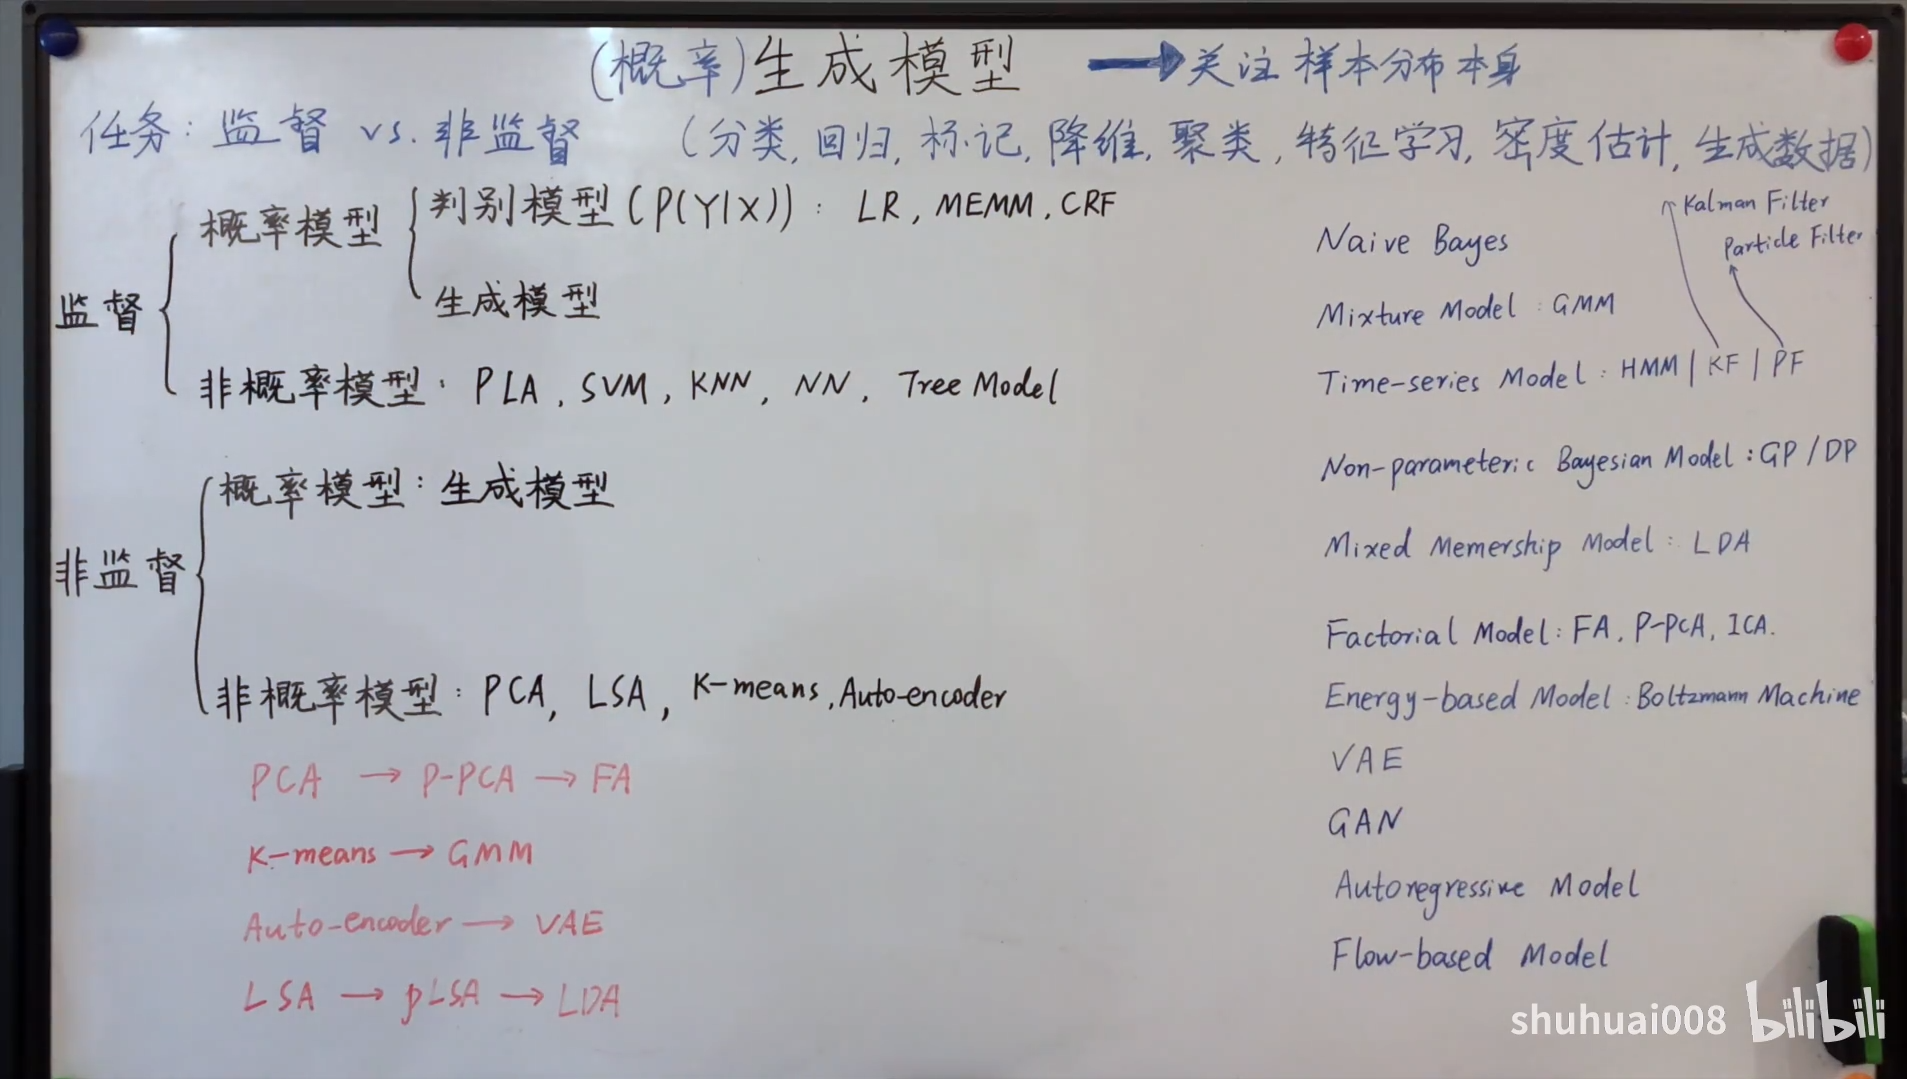 (概率)生成模型 → 关注样本分布本身
任务: 监督 vs. 非监督 (分类, 回归, 标记, 降维, 聚类, 特征学习, 密度估计, 生成数据)
监督
概率模型
判别模型 (P(Y|X)) : LR, MEMM, CRF
生成模型
非概率模型: PLA, SVM, KNN, NN, Tree Model
非监督
概率模型: 生成模型
非概率模型: PCA, LSA, K-means, Auto-encoder
PCA → P-PCA → FA
K-means → GMM
Auto-encoder → VAE
LSA → pLSA → LDA
Kalman Filter
Particle Filter
Naive Bayes
Mixture Model : GMM
Time-series Model : HMM | KF | PF
Non-parameteric Bayesian Model : GP / DP
Mixed Memership Model : LDA
Factorial Model: FA, P-PCA, ICA.
Energy-based Model : Boltzmann Machine
VAE
GAN
Autoregressive Model
Flow-based Model
shuhuai008 bilibili